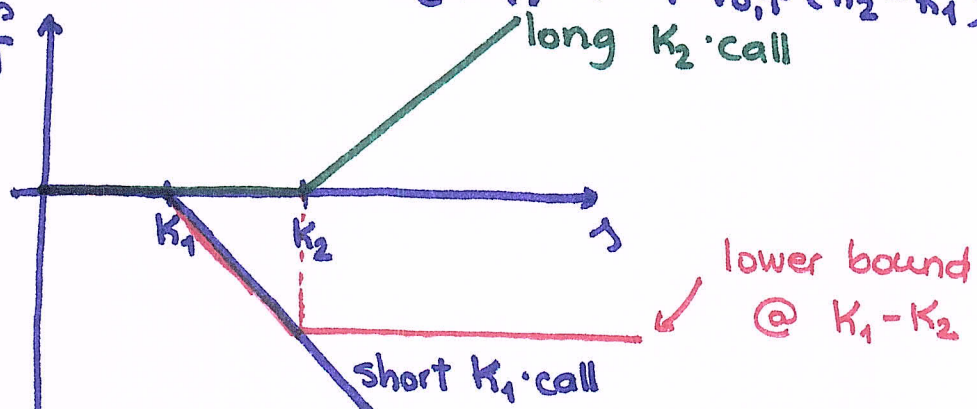 long K₂·call
K₁
K₂
s
lower bound
@ K₁-K₂
short K₁·call